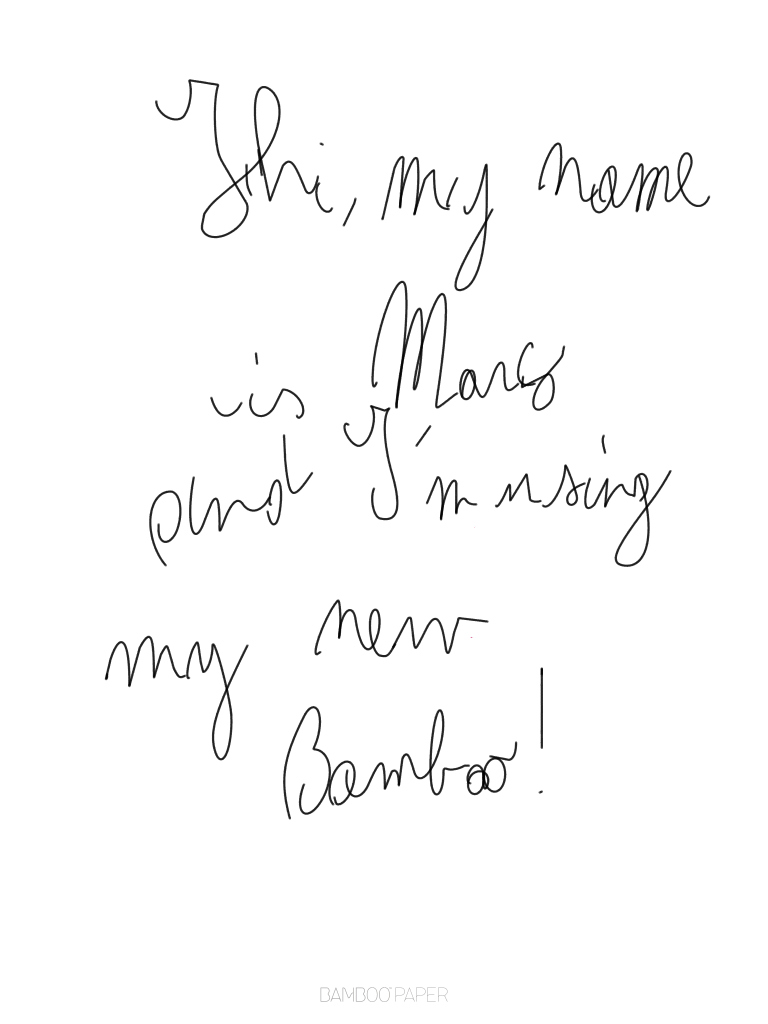 Hi, my name
is Marc
and I'm using
my new
Bamboo!
BAMBOO PAPER